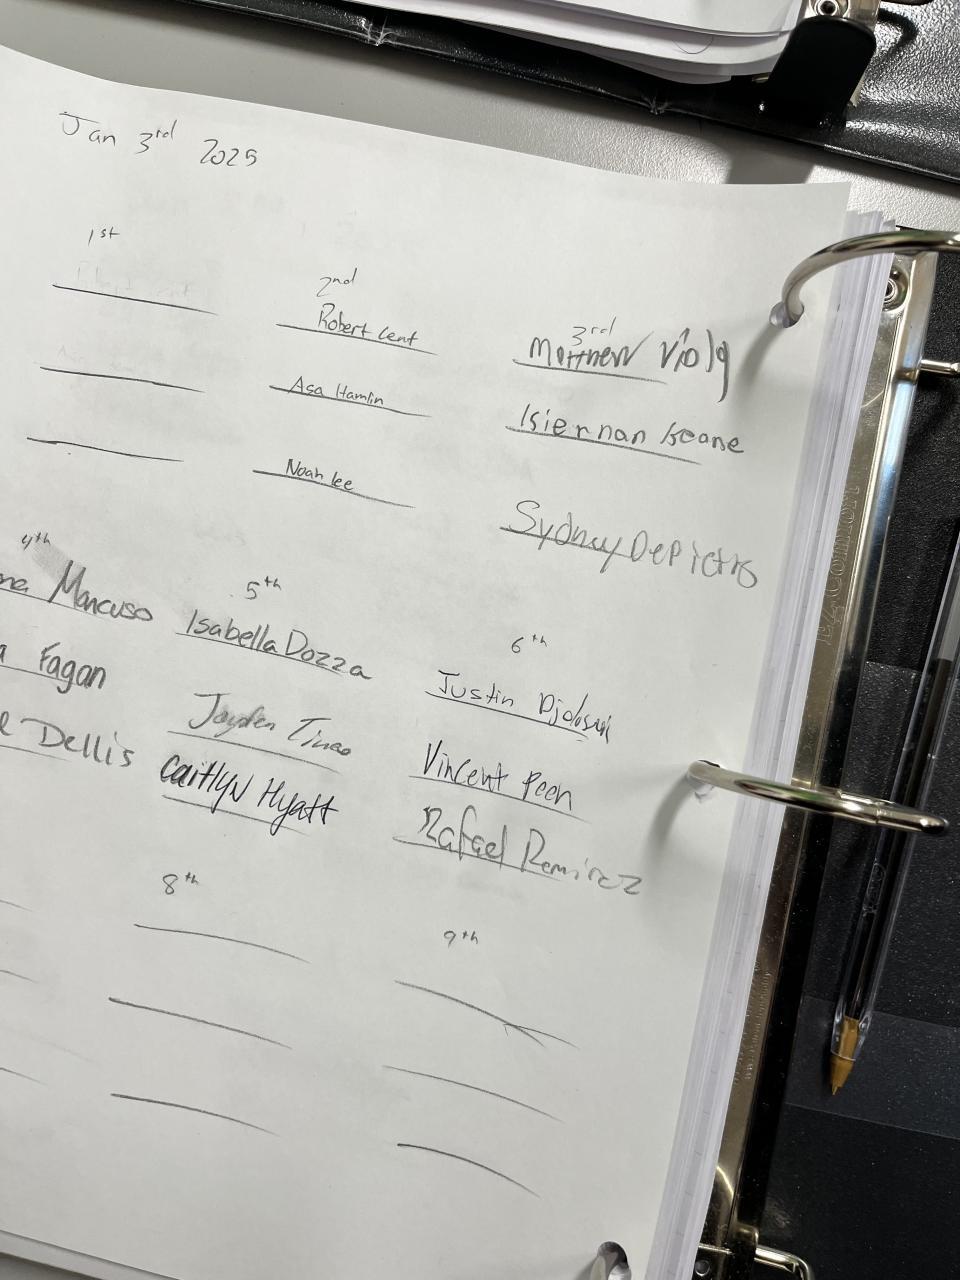 Jan 3rd 2025
1st
2nd
Robert Cent
Asa Hamlin
Noah Lee
3rd
Matthew Viola
Kiernan Keane
Sydney DePietto
4th
Mancuso
Fagan
Dellis
5th
Isabella Dozza
Jayden Tineo
Caitlyn Hyatt
6th
Justin
Vincent Peen
Rafael Ramirez
8th
9th